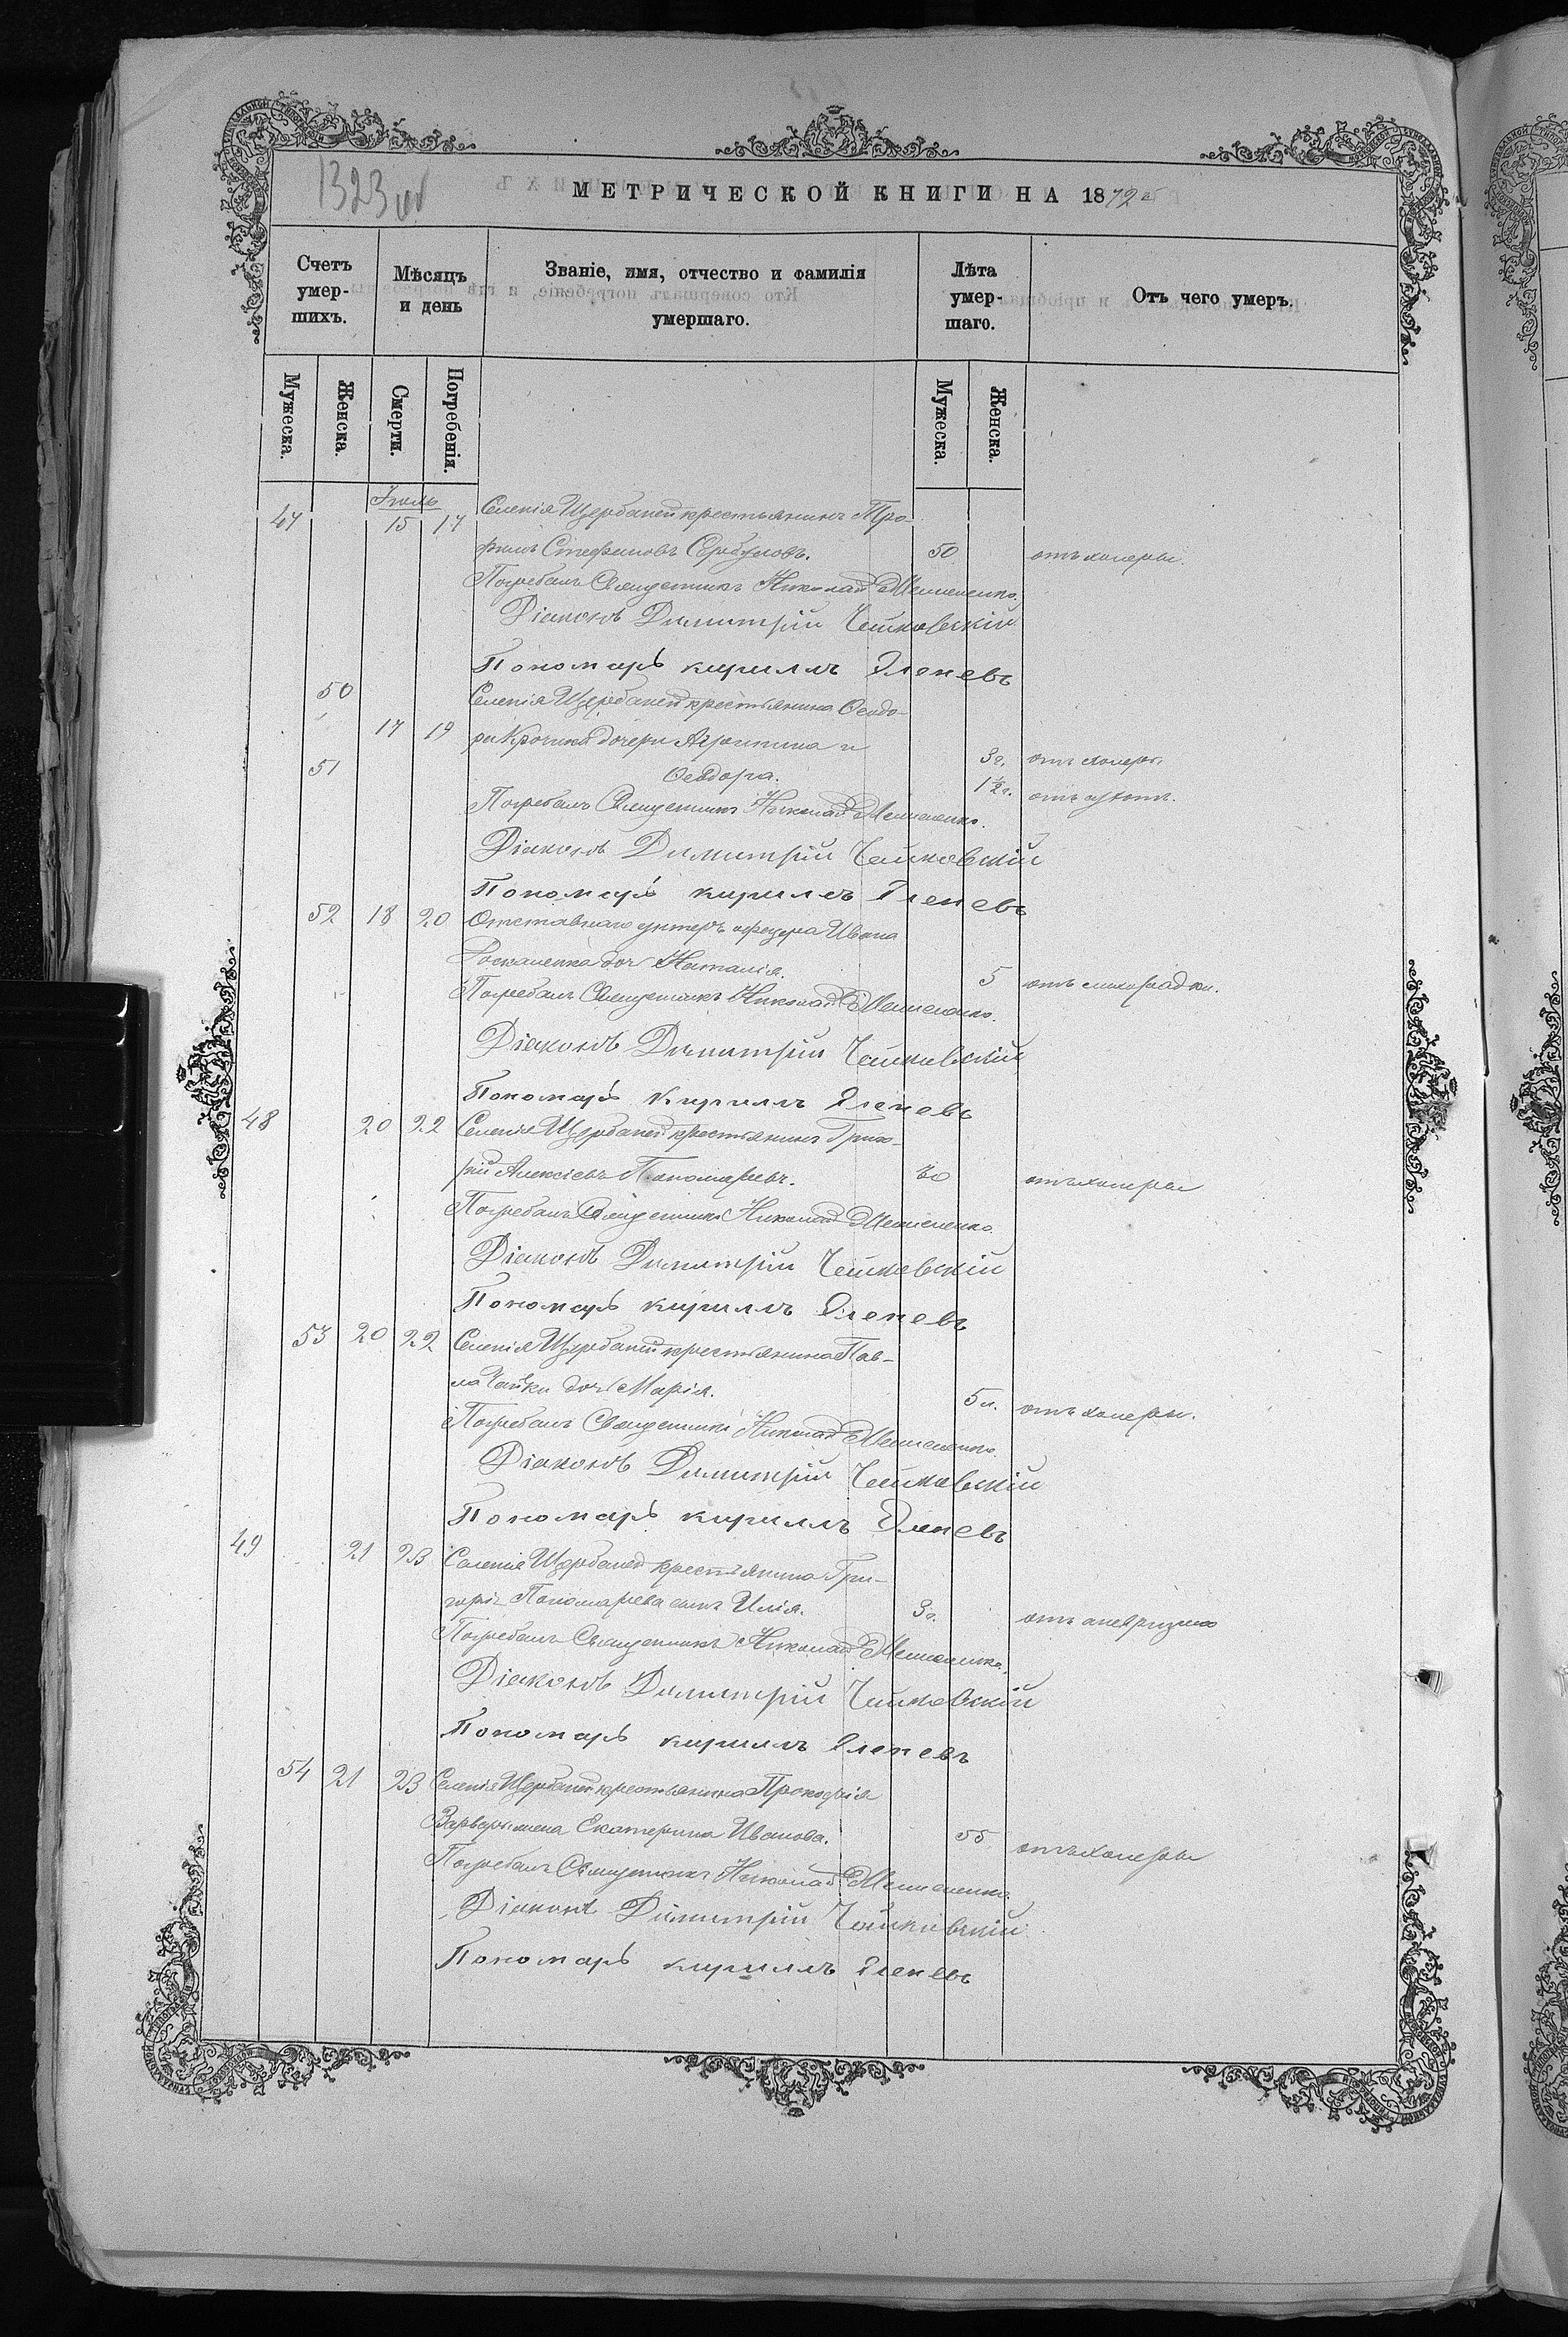 1323 об
МЕТРИЧЕСКОЙ КНИГИ НА 1872 г.
Счетъ умер-шихъ.
Мѣсяцъ и день
Званіе, имя, отчество и фамилія умершаго.
Лѣта умер-шаго.
Отъ чего умеръ.
Мужеска.
Женска.
Смерти.
Погребенія.
Мужеска.
Женска.
Іюль
47 15 17 Селенія Щербаней крестьянинъ Тро-
фимъ Стефановъ 50 отъ холеры.
Погребалъ Священникъ Николай
Діаконъ Димитрій Чайковскій
Пономарь Кириллъ
50 Селенія Щербаней крестьянина Ѳеодо-
17 19 ра дочери Агрипина и 3 г. отъ холеры
51 Ѳеодора. 1½ г.
Погребалъ Священникъ Николай
Діаконъ Димитрій Чайковскій
Пономарь Кириллъ
52 18 20 Отставнаго унтеръ офицера Ивана
дочь Наталія. 5 отъ лихорадки.
Погребалъ Священникъ Николай
Діаконъ Димитрій Чайковскій
Пономарь Кириллъ
48 20 22 Селенія Щербаней крестьянинъ Григо-
рій Алексіевъ Пономаревъ. отъ холеры
Погребалъ Священникъ Николай
Діаконъ Димитрій Чайковскій
Пономарь Кириллъ
53 20 22 Селенія Щербаней крестьянина Пав-
ла Чайки дочь Марія. 5 л. отъ холеры.
Погребалъ Священникъ Николай
Діаконъ Димитрій Чайковскій
Пономарь Кириллъ
49 21 23 Селенія Щербаней крестьянина Гри-
горія Пономарева сынъ Илія. 3 г. отъ аневризма
Погребалъ Священникъ Николай
Діаконъ Димитрій Чайковскій
Пономарь Кириллъ
54 21 23 Селенія Щербаней крестьянина Прокофія
жена Екатерина Иванова. 55 отъ холеры
Погребалъ Священникъ Николай
Діаконъ Димитрій Чайковскій
Пономарь Кириллъ